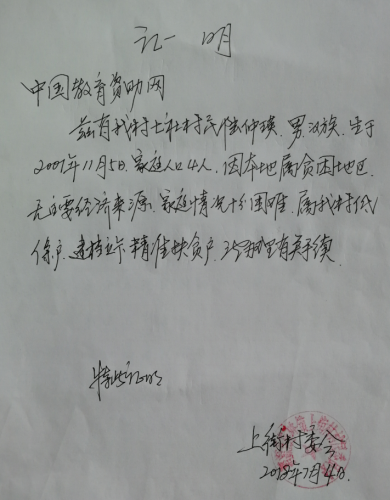 证明
中国教育资助网
兹有我村七社村民陈仲瑛、男、汉族、生于
2007年11月5日、家庭人口4人、因本地属贫困地区、
无主要经济来源、家庭情况十分困难、属我村低
保户、建档立卡精准扶贫户、
特此证明
上街村委会
2018年7月4日